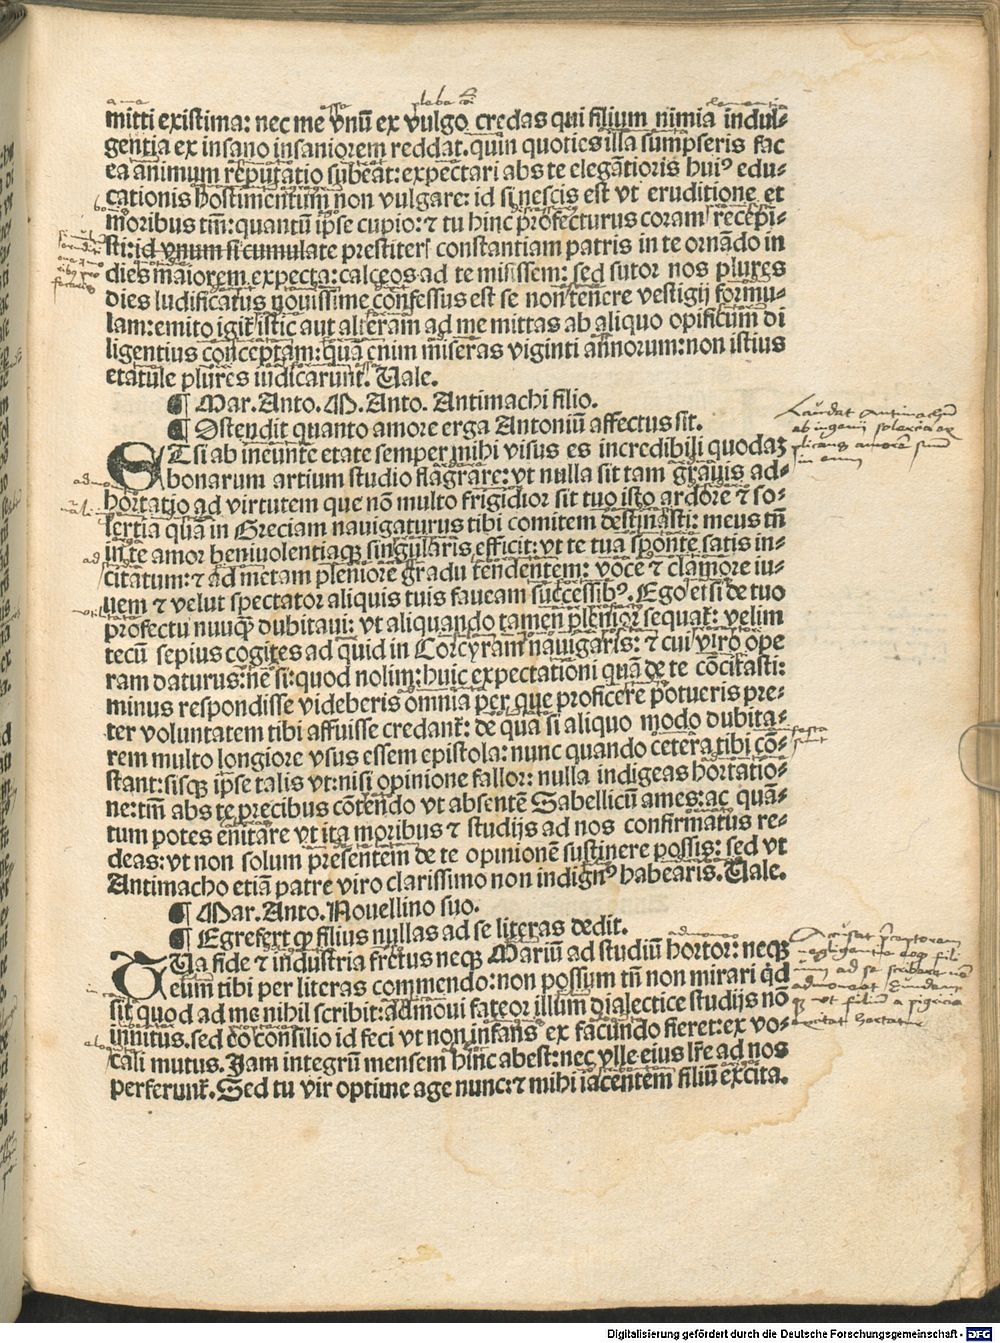 mitti existima: nec me vnū ex vulgo credas qui filium nimia indul-
gentia ex insano insaniorem reddat. quin quoties illa sumpseris fac
ea animum reputatio subeat: expectari abs te elegātioris huiꝰ edu-
cationis hostimentum non vulgare: id si nescis est vt eruditione et
moribus tm̄: quantū ip̄se cupio: ⁊ tu hinc profecturus coram recepi-
sti: id vnum si cumulate prestiteris constantiam patris in te ornādo in
dies maiorem expecta: calceos ad te misissem: sed sutor nos plures
dies ludificatus nouissime confessus est se non tenere vestigij formu-
lam: emito igit̄ istic aut alteram ad me mittas ab aliquo opificum di
ligentius conceptam: quā enim miseras viginti annorum: non istius
etatule plures iudicarunt̄. Uale.
¶ Mar. Anto. M. Anto. Antimachi filio.
¶ Ostendit quanto amore erga Antoniū affectus sit.
ETsi ab ineunte etate semper mihi visus es incredibili quodaꝫ
bonarum artium studio flagrare: vt nulla sit tam grauis ad-
hortatio ad virtutem que nō multo frigidior sit tuo isto ardore ⁊ so-
lertia quā in Greciam nauigaturus tibi comitem destinasti: meus tn̄
in te amor beniuolentiaqꝫ singularis efficit: vt te tua sponte satis in-
citatum: ⁊ ad metam pleniore gradu tendentem: voce ⁊ clamore iu-
uem ⁊ velut spectator aliquis tuis faueam successibꝰ. Ego etsi de tuo
profectu nunqꝫ dubitaui: vt aliquando tamen plenior sequat̄: velim
tecū sepius cogites ad quid in Corcyram nauigaris: ⁊ cui viro ope
ram daturus: ne si: quod nolim: huic expectationi quā de te cōcitasti:
minus respondisse videberis omnia per que proficere potueris pre-
ter voluntatem tibi affuisse credant̄: de qua si aliquo modo dubita-
rem multo longiore vsus essem epistola: nunc quando cetera tibi cō-
stant: sisqꝫ ip̄se talis vt: nisi opinione fallor: nulla indigeas hortatio-
ne: tm̄ abs te precibus cōtendo vt absentē Sabellicū ames: ac quā-
tum potes enitare vt ita moribus ⁊ studijs ad nos confirmatus re-
deas: vt non solum presentem de te opinionē sustinere possis: sed vt
Antimacho etiā patre viro clarissimo non indignꝰ habearis. Uale.
¶ Mar. Anto. Nouellino suo.
¶ Egre fert qp filius nullas ad se literas dedit.
TUa fide ⁊ industria fretus neqꝫ Mariū ad studiū hortor: neqꝫ
eum tibi per literas commendo: non possum tn̄ non mirari qd
sit quod ad me nihil scribit: admoui fateor illum dialectice studijs nō
inuitus. sed eo consilio id feci vt non infans ex facundo fieret: ex vo-
cali mutus. Jam integrū mensem hinc abest: nec vlle eius lr̄e ad nos
perferunt̄. Sed tu vir optime age nunc: ⁊ mihi iacentem filiū excita.
Digitalisierung gefördert durch die Deutsche Forschungsgemeinschaft - DFG